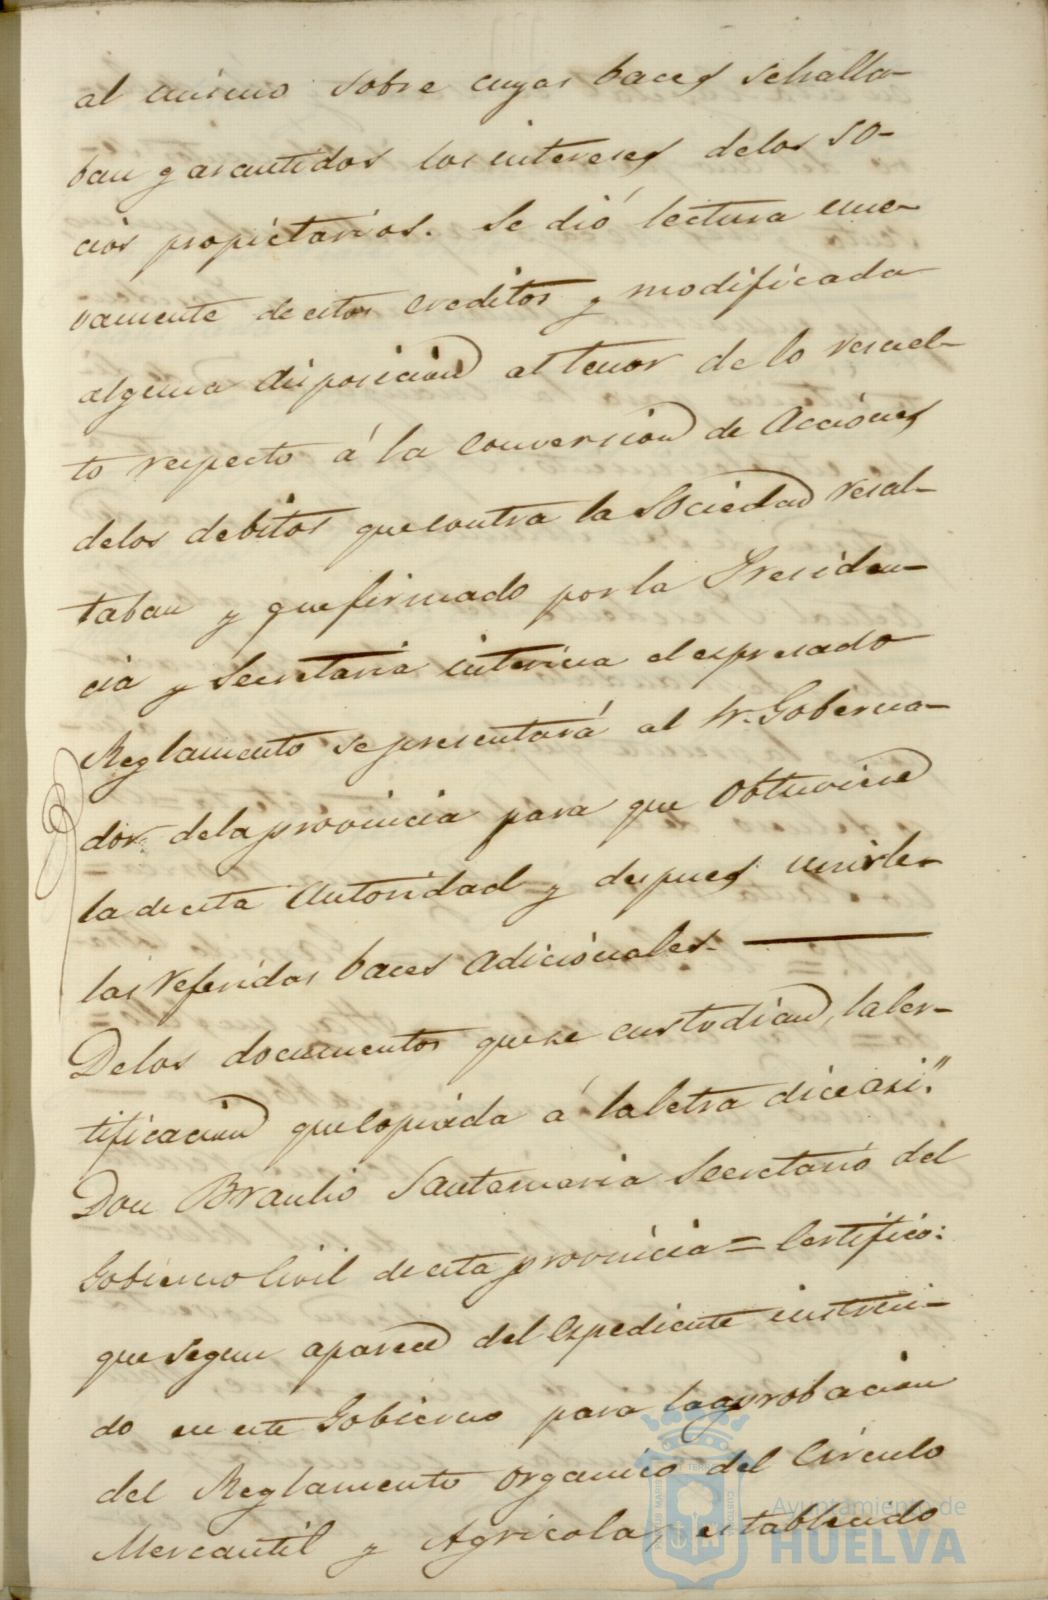 al mismo sobre cuyas baces sehalla-
ban garantidos los intereses delos so-
cios propietarios. Se dió lectura nue-
vamente de estos creditos y modificada
alguna disposicion al tenor de lo resuel-
to respecto á la conversion de Acciones
delos debitos que contra la Sociedad resul-
taban y que firmado por la Presiden-
cia y Secretaria interina el espresado
Reglamento se presentará al Sr. Goberna-
dor dela provincia para que obtuviese
la de esta Autoridad y despues unirle
las referidas baces adicionales.
Delos documentos que se custodian, la cer-
tificacion que copiada á la letra dice asi."
Don Braulio Santamaria Secretario del
Gobierno Civil de esta provincia = Certifico:
que segun aparece del Espediente instrui-
do en este Gobierno para la aprobacion
del Reglamento organico del Círculo
Mercantil y Agricola, establecido
Ayuntamiento de
HUELVA